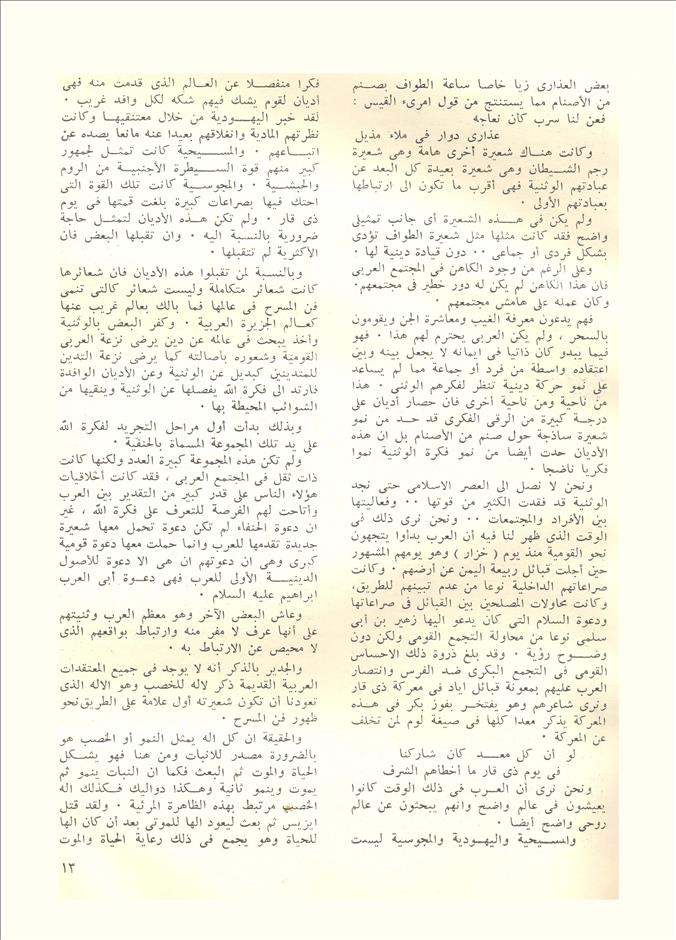 بعض العذارى زيا خاصا ساعة الطواف بصنم
من الأصنام مما يستنتج من قول امرىء القيس :
فعن لنا سرب كان نعاجه
عذارى دوار فى ملاء مذيل
وكانت هناك شعيرة أخرى هامة وهى شعيرة
رجم الشيطان وهى شعيرة بعيدة كل البعد عن
عبادتهم الوثنية فهى أقرب ما تكون الى ارتباطها
بعبادتهم الأولى .
ولم يكن فى هذه الشعيرة أى جانب تمثيلى
واضح فقد كانت مثلها مثل شعيرة الطواف تؤدى
بشكل فردى أو جماعى .. دون قيادة دينية لها .
وعلى الرغم من وجود الكاهن فى المجتمع العربى
فان هذا الكاهن لم يكن له دور خطير فى مجتمعهم.
وكان عمله على هامش مجتمعهم .
فهم يدعون معرفة الغيب ومعاشرة الجن ويقومون
بالسحر ، ولم يكن العربى يحترم لهم هذا . فهو
فيما يبدو كان ذاتيا فى ايمانه لا يجعل بينه وبين
اعتقاده واسطة من فرد أو جماعة مما لم يساعد
على نمو حركة دينية تنظر لفكرهم الوثنى . هذا
من ناحية ومن ناحية أخرى فان حصار أديان على
درجة كبيرة من الرقى الفكرى قد حد من نمو
شعيرة ساذجة حول صنم من الأصنام بل ان هذه
الأديان حدت أيضا من نمو فكرة الوثنية نموا
فكريا ناضجا .
ونحن لا نصل الى العصر الاسلامى حتى نجد
الوثنية قد فقدت الكثير من قوتها .. وفعاليتها
بين الأفراد والمجتمعات .. ونحن نرى ذلك فى
الوقت الذى ظهر لنا فيه أن العرب بدأوا يتجهون
نحو القومية منذ يوم ( خزار ) وهو يومهم المشهور
حين أجلت قبائل ربيعة اليمن عن أرضهم . وكانت
صراعاتهم الداخلية نوعا من عدم تبينهم للطريق،
وكانت محاولات المصلحين بين القبائل فى صراعاتها
ودعوة السلام التى كان يدعو اليها زهير بن أبى
سلمى نوعا من محاولة التجمع القومى ولكن دون
وضوح رؤية . وقد بلغ ذروة ذلك الاحساس
القومى فى التجمع البكرى ضد الفرس وانتصار
العرب عليهم بمعونة قبائل اياد فى معركة ذى قار
ونرى شاعرهم وهو يفتخر بفوز بكر فى هذه
المعركة يذكر معدا كلها فى صيغة لوم لمن تخلف
عن المعركة .
لو أن كل معد كان شاركنا
فى يوم ذى قار ما أخطأهم الشرف
ونحن نرى أن العرب فى ذلك الوقت كانوا
يعيشون فى عالم واضح وانهم يبحثون عن عالم
روحى واضح أيضا .
والمسيحية واليهودية والمجوسية ليست
فكرا منفصلا عن العالم الذى قدمت منه فهى
أديان لقوم يشك فيهم شكه لكل وافد غريب .
لقد خبر اليهودية من خلال معتنقيها وكانت
نظرتهم المادية وانغلاقهم بعيدا عنه مانعا يصده عن
اتباعهم . والمسيحية كانت تمثل لجمهور
كبير منهم قوة السيطرة الأجنبية من الروم
والحبشية . والمجوسية كانت تلك القوة التى
احتك فيها بصراعات كبيرة بلغت قمتها فى يوم
ذى قار . ولم تكن هذه الأديان لتمثل حاجة
ضرورية بالنسبة اليه . وان تقبلها البعض فان
الأكثرية لم تتقبلها .
وبالنسبة لمن تقبلوا هذه الأديان فان شعائرها
كانت شعائر متكاملة وليست شعائر كالتى تنمى
فن المسرح فى عالمها فما بالك بعالم غريب عنها
كعالم الجزيرة العربية . وكفر البعض بالوثنية
وأخذ يبحث فى عالمه عن دين يرضى نزعة العربى
القومية وشعوره بأصالته كما يرضى نزعة التدين
للمتدينين كبديل عن الوثنية وعن الأديان الوافدة
فارتد الى فكرة الله يفصلها عن الوثنية وينقيها من
الشوائب المحيطة بها .
وبذلك بدأت أول مراحل التجريد لفكرة الله
على يد تلك المجموعة المسماة بالحنفية .
ولم تكن هذه المجموعة كبيرة العدد ولكنها كانت
ذات ثقل فى المجتمع العربى ، فقد كانت أخلاقيات
هؤلاء الناس على قدر كبير من التقدير بين العرب
وأتاحت لهم الفرصة للتعرف على فكرة الله ، غير
ان دعوة الحنفاء لم تكن دعوة تحمل معها شعيرة
جديدة تقدمها للعرب وانما حملت معها دعوة قومية
كبرى وهى ان دعوتهم ان هى الا دعوة للأصول
الدينية الأولى للعرب فهى دعوة أبى العرب
ابراهيم عليه السلام .
وعاش البعض الآخر وهو معظم العرب وثنيتهم
على أنها عرف لا مفر منه وارتباط بواقعهم الذى
لا محيص عن الارتباط به .
والجدير بالذكر أنه لا يوجد فى جميع المعتقدات
العربية القديمة ذكر لاله للخصب وهو الاله الذى
تعودنا أن تكون شعيرته أول علامة على الطريق نحو
ظهور فن المسرح .
والحقيقة ان كل اله يمثل النمو أو الخصب هو
بالضرورة مصدر للانبات ومن هنا فهو يشكل
الحياة والموت ثم البعث فكما ان النبات ينمو ثم
يموت وينمو ثانية وهكذا دواليك فكذلك اله
الخصب مرتبط بهذه الظاهرة المرئية . ولقد قتل
ايزيس ثم بعث ليعود الها للموتى بعد أن كان الها
للحياة وهو يجمع فى ذلك رعاية الحياة والموت
١٣